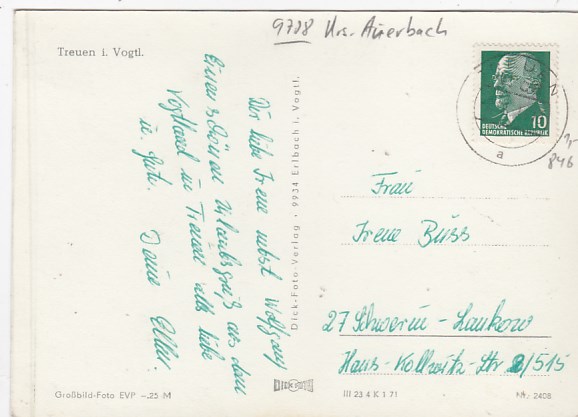 9708 Krs. Auerbach
Treuen i. Vogtl.
Dir liebe Irene nebst Wolfgang
einen schönen Urlaubsgruß aus dem
Vogtland in Treuen alles liebe
u. Gute. Deine Ellen.
Dick-Foto-Verlag • 9934 Erlbach i. Vogtl.
10
DEUTSCHE
DEMOKRATISCHE REPUBLIK
a
1,-
846
Frau
Irene Buss
27 Schwerin-Lankow
Hans-Kollwitz-Str 8/515
Großbild-Foto EVP -.25 M
DICK FOTO
III 23 4 K 1 71
Nr. 2408